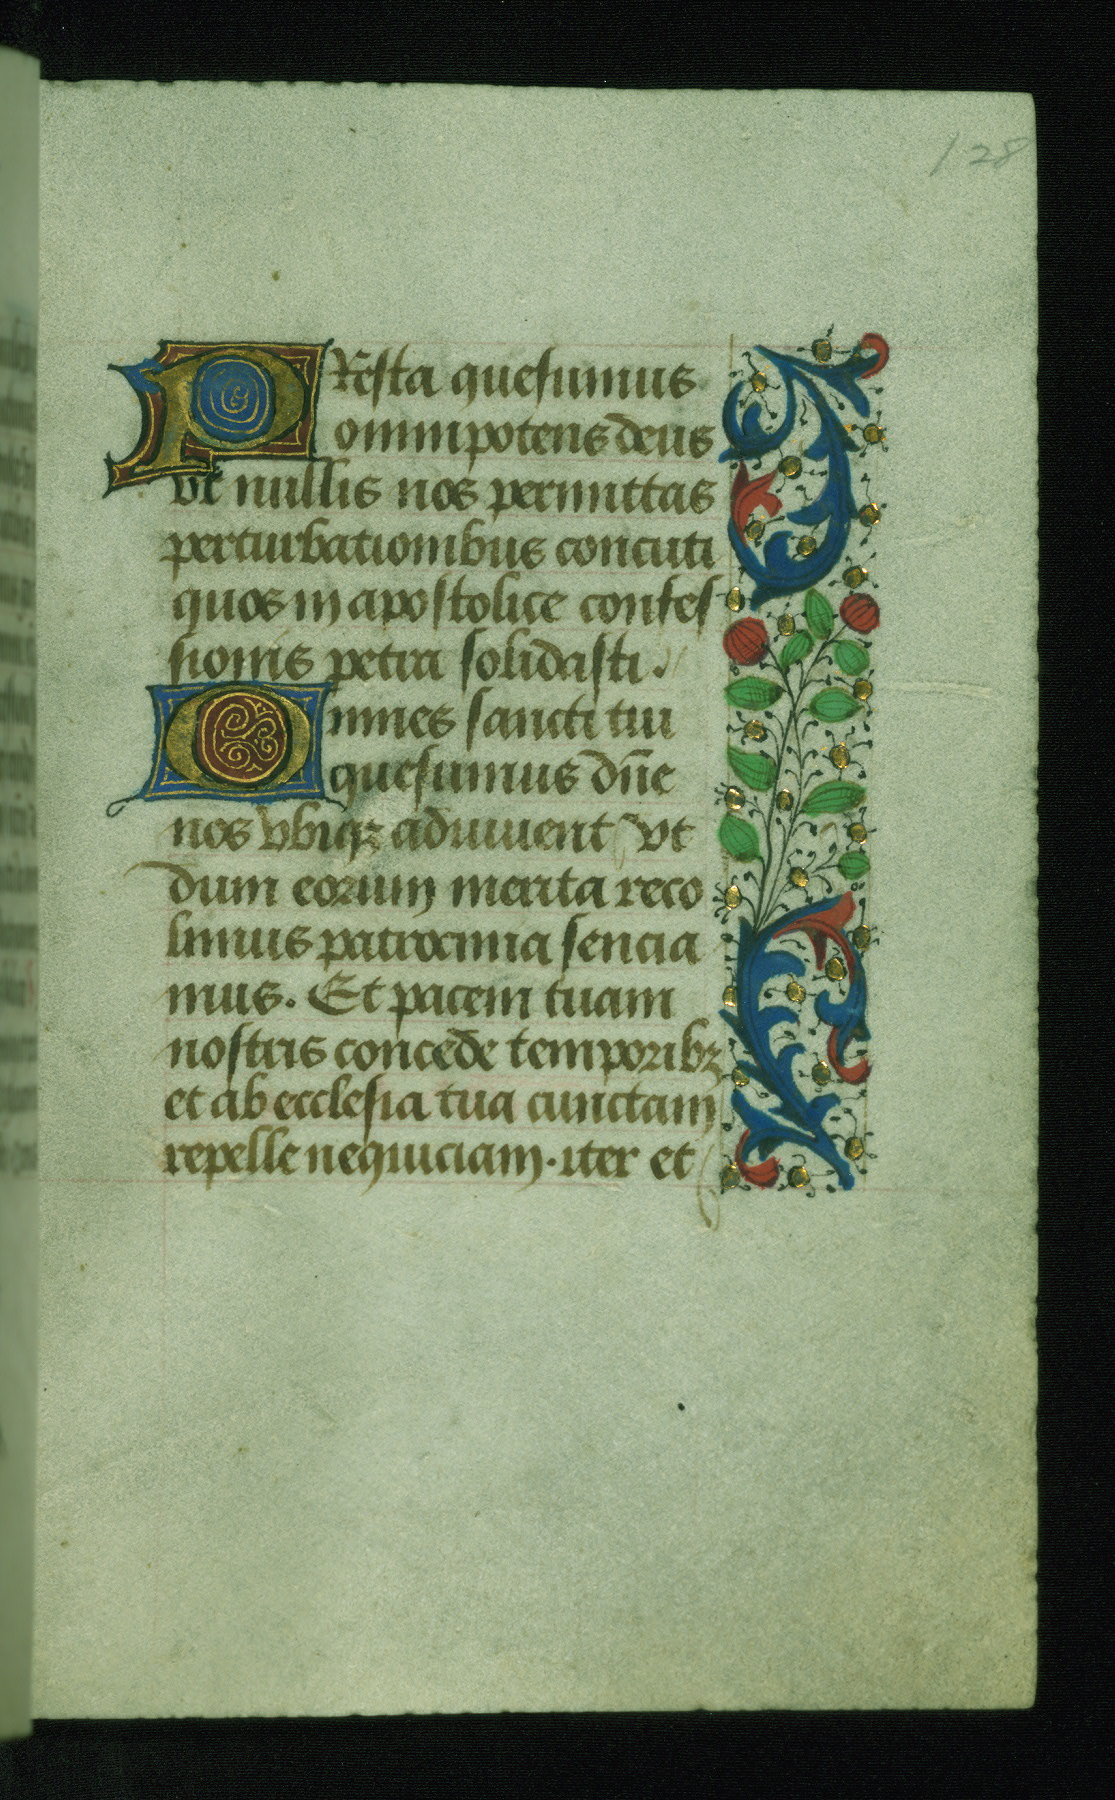 128
PResta quesumus
omnipotens deus
vt nullis nos permittas
perturbationibus concuti
quos in apostolice confes
sionis petra solidasti.
Omnes sancti tui
quesumus dn̄e
nos vbiqꝫ adiuuent vt
dum eorum merita reco
limus patrocinia sencia
mus. Et pacem tuam
nostris concede temporibꝫ
et ab ecclesia tua cunctam
repelle nequiciam. iter et